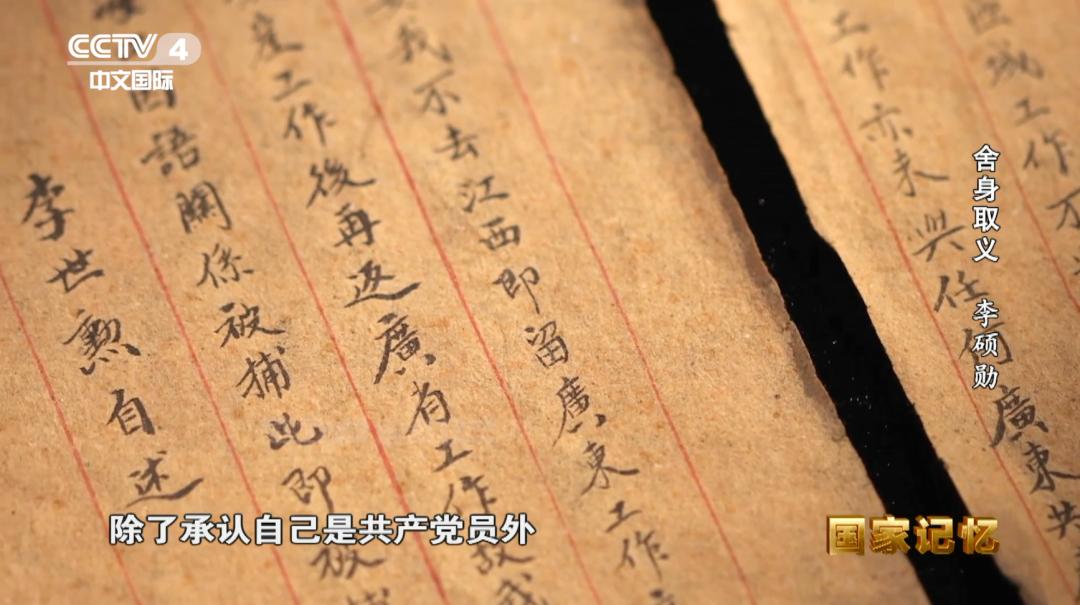 CCTV 4
中文国际
区域工作不
工作亦未与任何廣東共
我不去江西即留廣東工作
産工作後再返廣有工作故我
因語関係被捕此即被捕
李世勲自述
舍身取义 李硕勋
除了承认自己是共产党员外
国家记忆